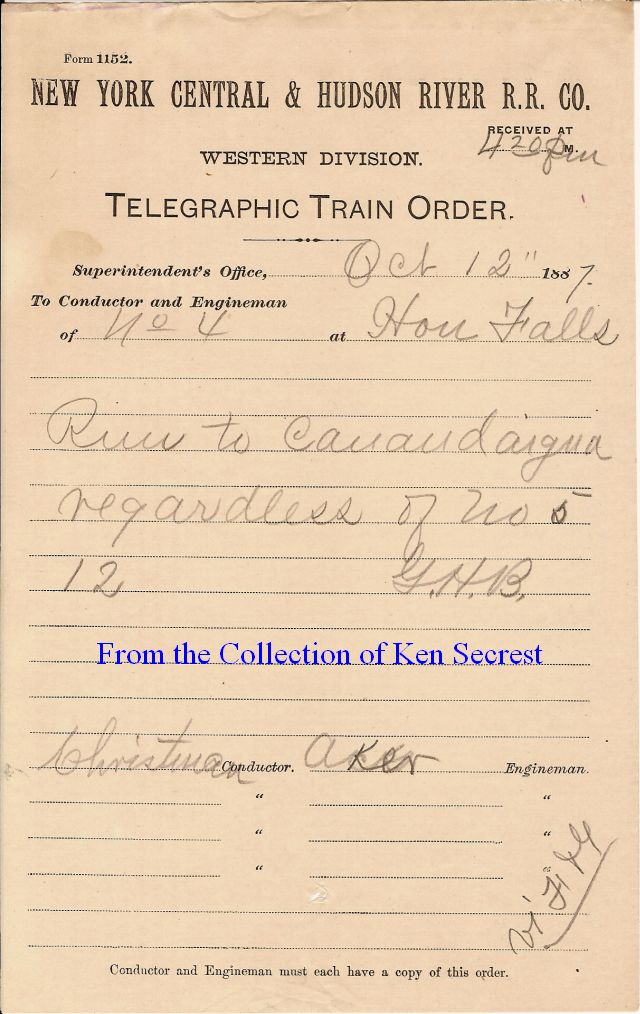 Form 1152.
NEW YORK CENTRAL & HUDSON RIVER R.R. CO.
RECEIVED AT
420 pm M.
WESTERN DIVISION.
TELEGRAPHIC TRAIN ORDER.
Superintendent's Office, Oct 12" 1887.
To Conductor and Engineman
of No 4 at Hon Falls
Run to Canandaigua
regardless of No 5
12 G.H.B.
From the Collection of Ken Secrest
Christman Conductor. Aker Engineman.
" "
" "
" "
Conductor and Engineman must each have a copy of this order.